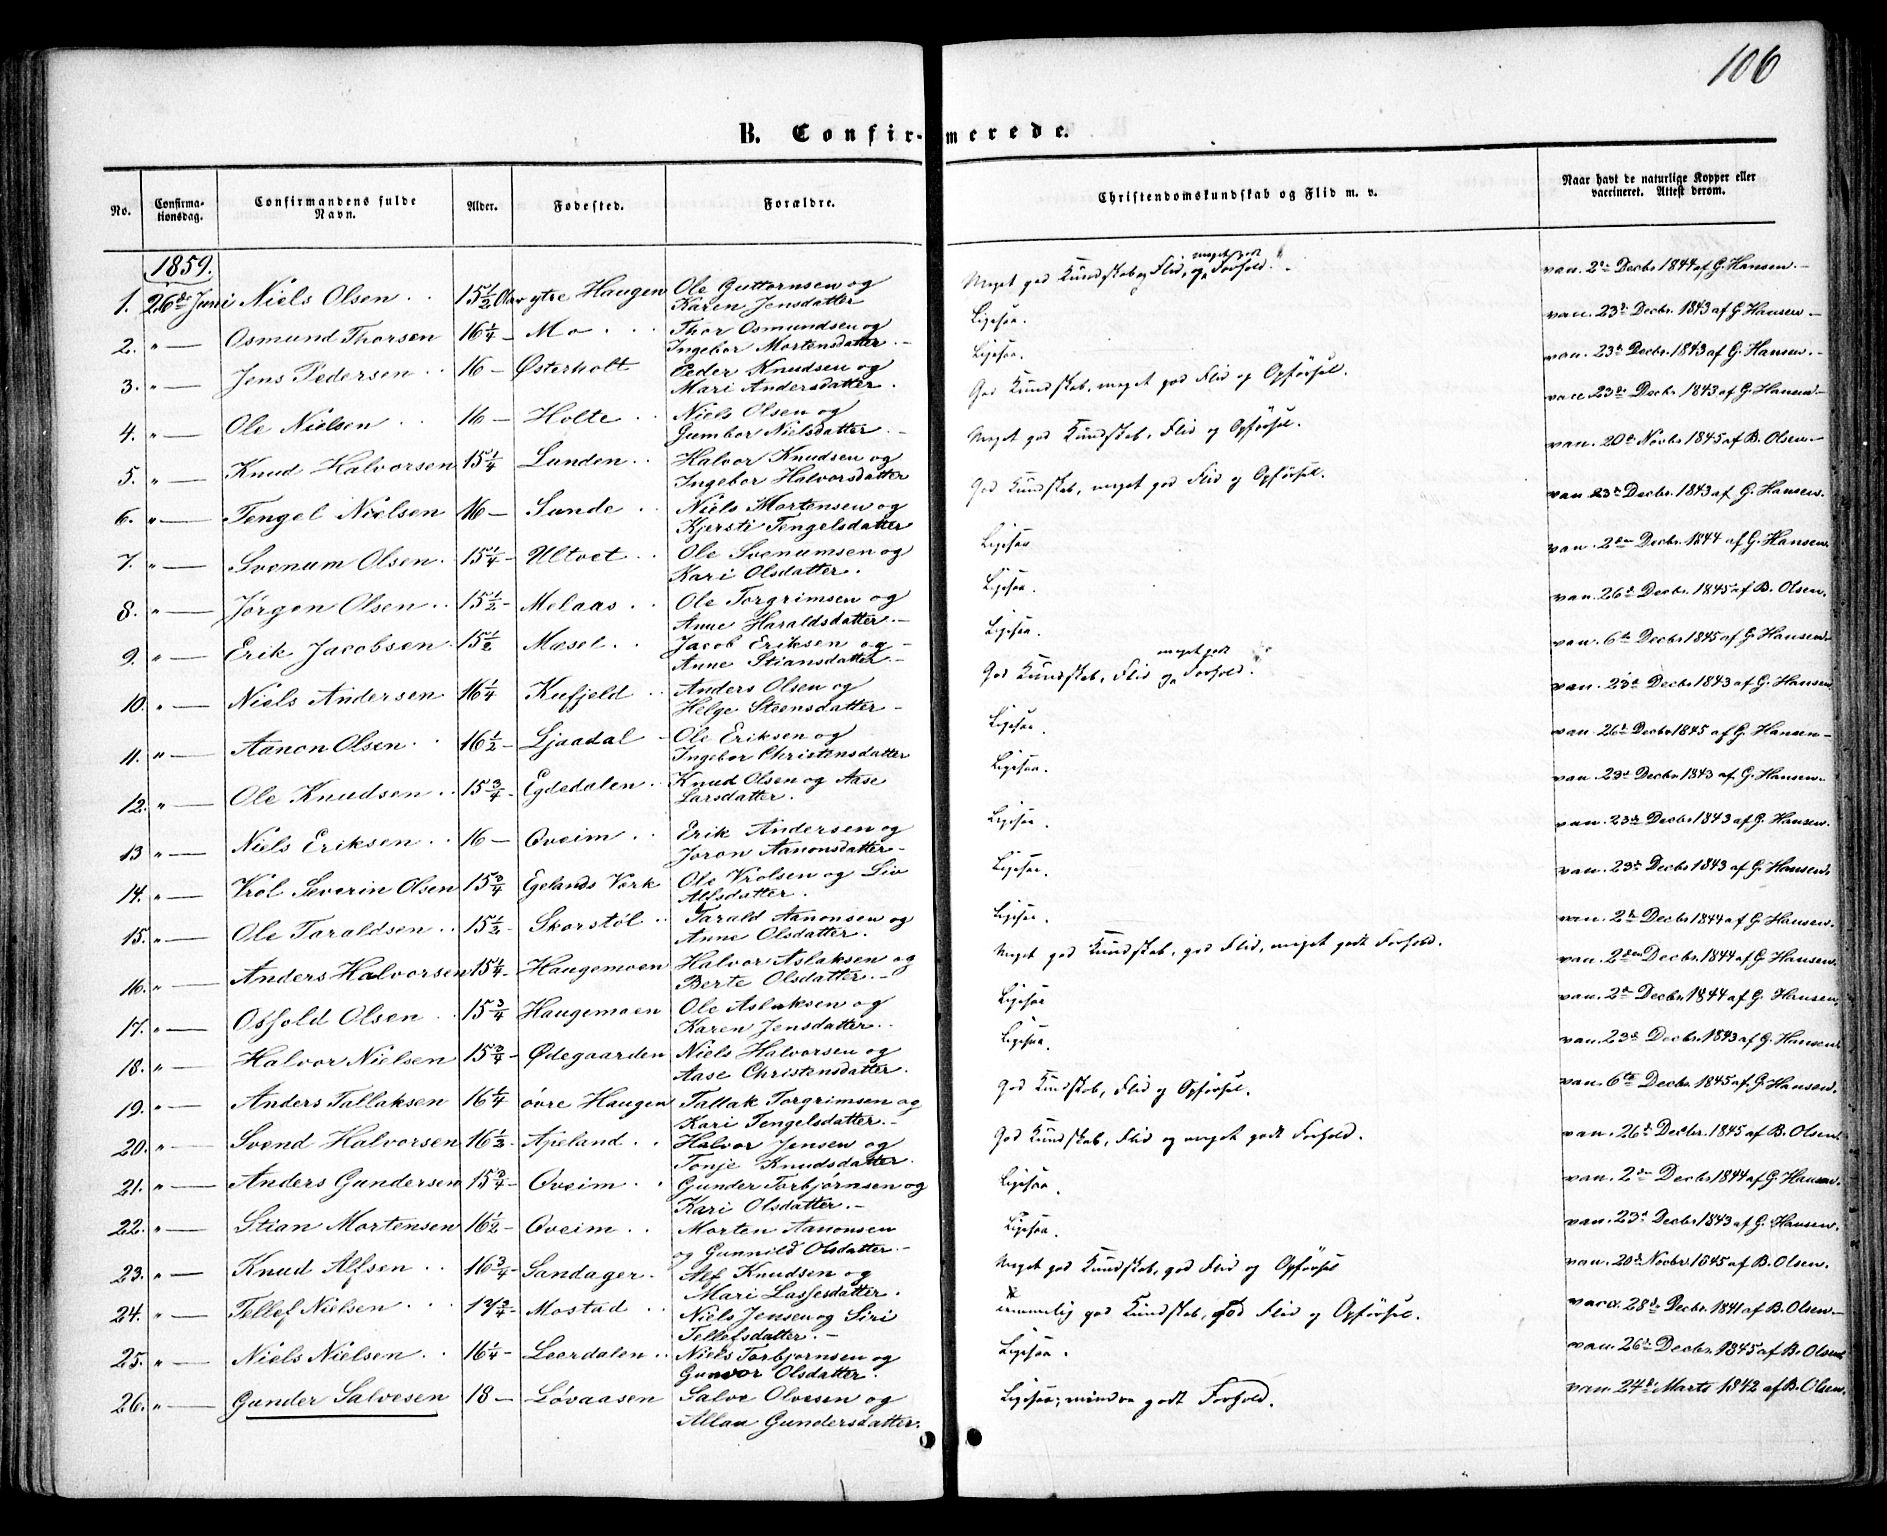 106
B. Confirmerede.
No. Confirmationsdag. Confirmandens fulde Navn. Alder. Fødested. Forældre. Christendomskundskab og Flid m. v. Naar havt de naturlige Kopper eller vaccineret. Attest derom.
1859.
1. 26de Juni Niels Olsen 15½ Aar ytre Haugen Ole Guttormsen og Karen Jensdatter Meget god Kundskab og Flid, og meget godt Forhold. vac. 2den Decbr 1844 af G. Hansen.
2. " Osmund Thorsen 16¼ Mo Thor Osmundsen og Ingebor Mortensdatter. Ligesaa. vac. 23de Decbr. 1843 af G. Hansen.
3. " Jens Pedersen 16 Østerholt Peder Knudsen og Mari Andersdatter. Ligesaa. vac. 23de Decbr. 1843 af G. Hansen.
4. " Ole Nielsen 16 Holte Niels Olsen og Gumbor Nielsdatter. God Kundskab, meget god Flid og Opførsel. vac. 23de Decbr. 1843 af G. Hansen
5. " Knud Halvorsen 15¼ Lunden Halvor Knudsen og Ingebor Halvorsdatter Meget god Kundskab, Flid og Opførsel. vac. 20de Novbr. 1845 af B. Olsen.
6. " Tengel Nielsen 16 Sunde Niels Mortensen og Kjersti Tengelsdatter God Kundskab, meget god Flid og Opførsel. vac. 23de Decbr. 1843 af G. Hansen.
7. " Svenum Olsen 15¼ Ultvet Ole Svenumsen og Kari Olsdatter. Ligesaa vac. 2den Decbr. 1844 af G. Hansen.
8. " Jørgen Olsen 15½ Melaas Ole Torgrimsen og Anne Haraldsdatter. Ligesaa. vac. 26de Decbr. 1845 af B. Olsen.
9. " Erik Jacobsen 15½ Mæsel Jacob Eriksen og Anne Stiansdatter. Ligesaa. vac. 6te Decbr. 1845 af G. Hansen.
10. " Niels Andersen 16¼ Kufjeld Anders Olsen og Helge Steensdatter God Kundskab, Flid og meget godt Forhold. vac. 23de Decbr. 1843 af G. Hansen
11. " Aanon Olsen 16½ Ljaadal Ole Eriksen og Ingebor Christensdatter Ligesaa. vac. 26de Decbr 1845 af G. Hansen
12. " Ole Knudsen 15¾ Egdedalen Knud Olsen og Aase Larsdatter. Ligesaa. vac. 23de Decbr 1843 af G. Hansen.
13 " Niels Eriksen 16 Oveim Erik Andersen og Joron Aanonsdatter Ligesaa. vac. 23de Decbr. 1843 af G. Hansen.
14. " Vrol Severin Olsen 15¾ Egelands Værk Ole Vrolsen og Liv Alfsdatter. Ligesaa. vac. 23de Decbr. 1843 af G. Hansen.
15. " Ole Taraldsen 15½ Skorstøl Tarald Aanonsen og Anne Olsdatter. Ligesaa. vac. 2den Decbr. 1844 af G. Hansen.
16. " Anders Halvorsen 15¼ Haugemoen Halvor Aslaksen og Berte Olsdatter. Meget god Kundskab, god Flid, meget godt Forhold. vac. 2den Decbr. 1844 af G. Hansen.
17. " Osfold Olsen 15¾ Haugemoen Ole Aslaksen og Karen Jensdatter. Ligesaa vac. 2den Decbr. 1844 af G. Hansen.
18. " Halvor Nielsen 15¾ Ødegaarden Niels Halvorsen og Aase Christensdatter. Ligesaa. vac. 23de Decbr. 1843 af G. Hansen.
19. " Anders Tallaksen 16¼ övre Haugen Tallak Torgrimsen og Kari Tengelsdatter. God Kundskab, Flid og Opførsel. vac. 6te Decbr. 1845 af G. Hansen.
20. " Svend Halvorsen 16½ Apeland Halvor Jensen og Tonje Knudsdatter. God Kundskab, Flid og meget godt Forhold. vac. 26de Decbr. 1845 af B. Olsen.
21. " Anders Gundersen 15¾ Oveim Gunder Torbjørnsen og Kari Olsdatter. Ligesaa. vac. 2den Decbr. 1844 af G. Hansen.
22. " Stian Mortensen 16½ Oveim Morten Aanonsen og Gunnild Olsdatter. Ligesaa. vac. 23de Decbr. 1843 af G. Hansen.
23. " Knud Alfsen 16¾ Sandager. Alf Knudsen og Mari Lassesdatter. Meget god Kundskab, god Flid og Opførsel vac. 20de Novbr. 1845 af B. Olsen.
24. " Tellef Nielsen 17¾ Mostad Niels Jensen og Siri Tellefsdatter. temmelig god Kundskab, god Flid og Opførsel. vacc. 28de Decbr. 1841 af B. Olsen
25. " Niels Nielsen 16¼ Leerdalen Niels Torbjørnsen og Gunvor Olsdatter. Ligesaa. vac. 26de Decbr. 1845 af B. Olsen
26. " Gunder Salvesen 18 Løvaasen Salve Olvesen og Allau Gundersdatter. Ligesaa; mindre godt Forhold. vac. 24de Marts 1842 af B. Olsen.